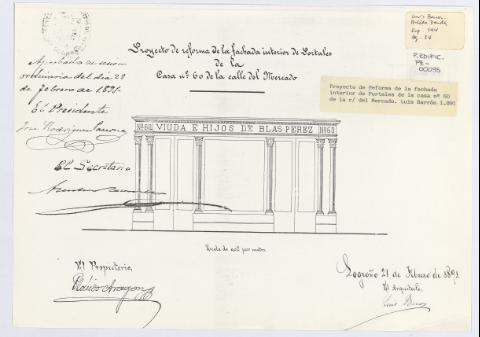 Proyecto de reforma de la fachada interior de Portales
de la
Casa nº 60 de la calle del Mercado
Aprobada en sesion
ordinaria del dia 28
de febrero de 1891.
El Presidente
El Secretario
P. EDIFIC.
PE-
00095
Proyecto de Reforma de la fachada
interior de Portales de la casa nº 60
de la c/ del Mercado. Luis Barrón 1.891
Nº 60 VIUDA E HIJOS DE BLAS PEREZ Nº 60
Escala de por metro
El Propietario
Logroño 21 de Febrero de 1891
El Arquitecto
Luis Barron